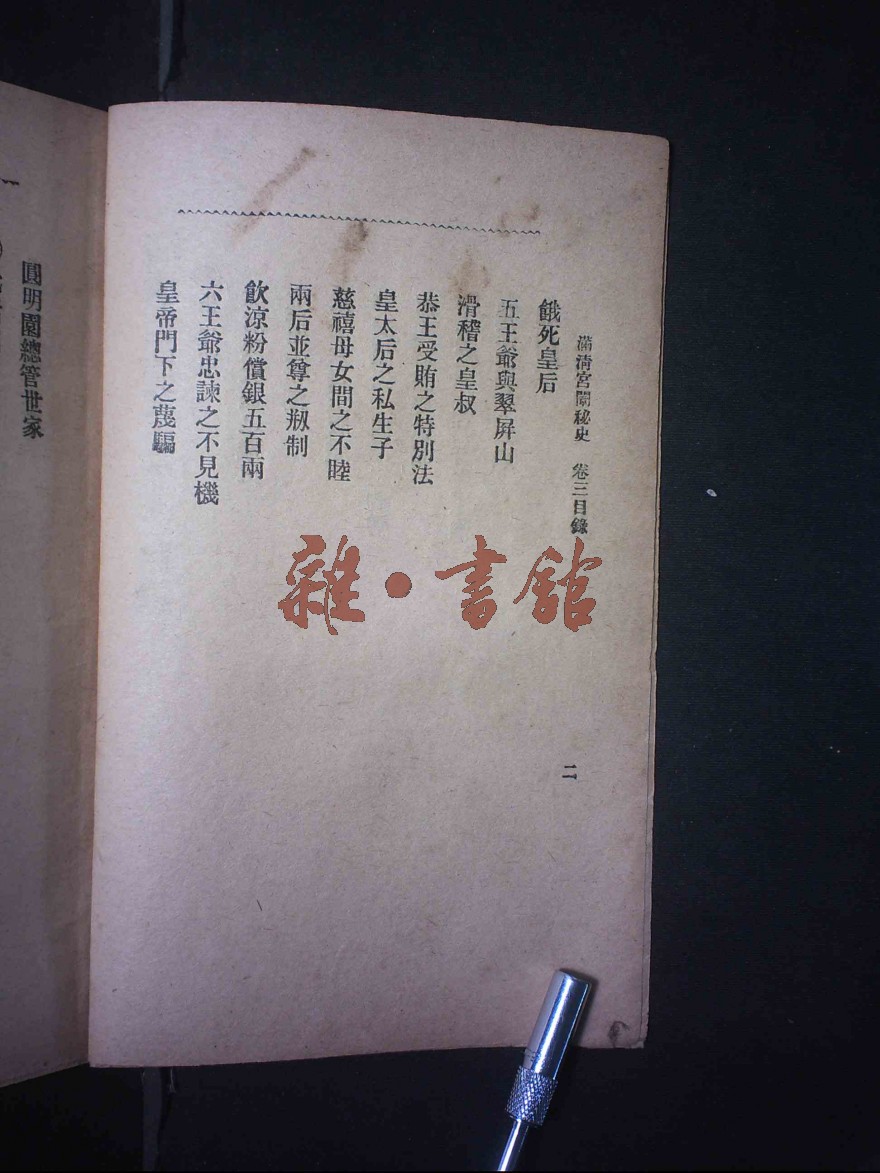 滿清宮闈秘史 卷三目錄
二
餓死皇后
五王爺與翠屏山
滑稽之皇叔
恭王受賄之特別法
皇太后之私生子
慈禧母女間之不睦
兩后並尊之剏制
飲涼粉償銀五百兩
六王爺忠諫之不見機
皇帝門下之蔑騙
圓明園總管世家
雜·書館